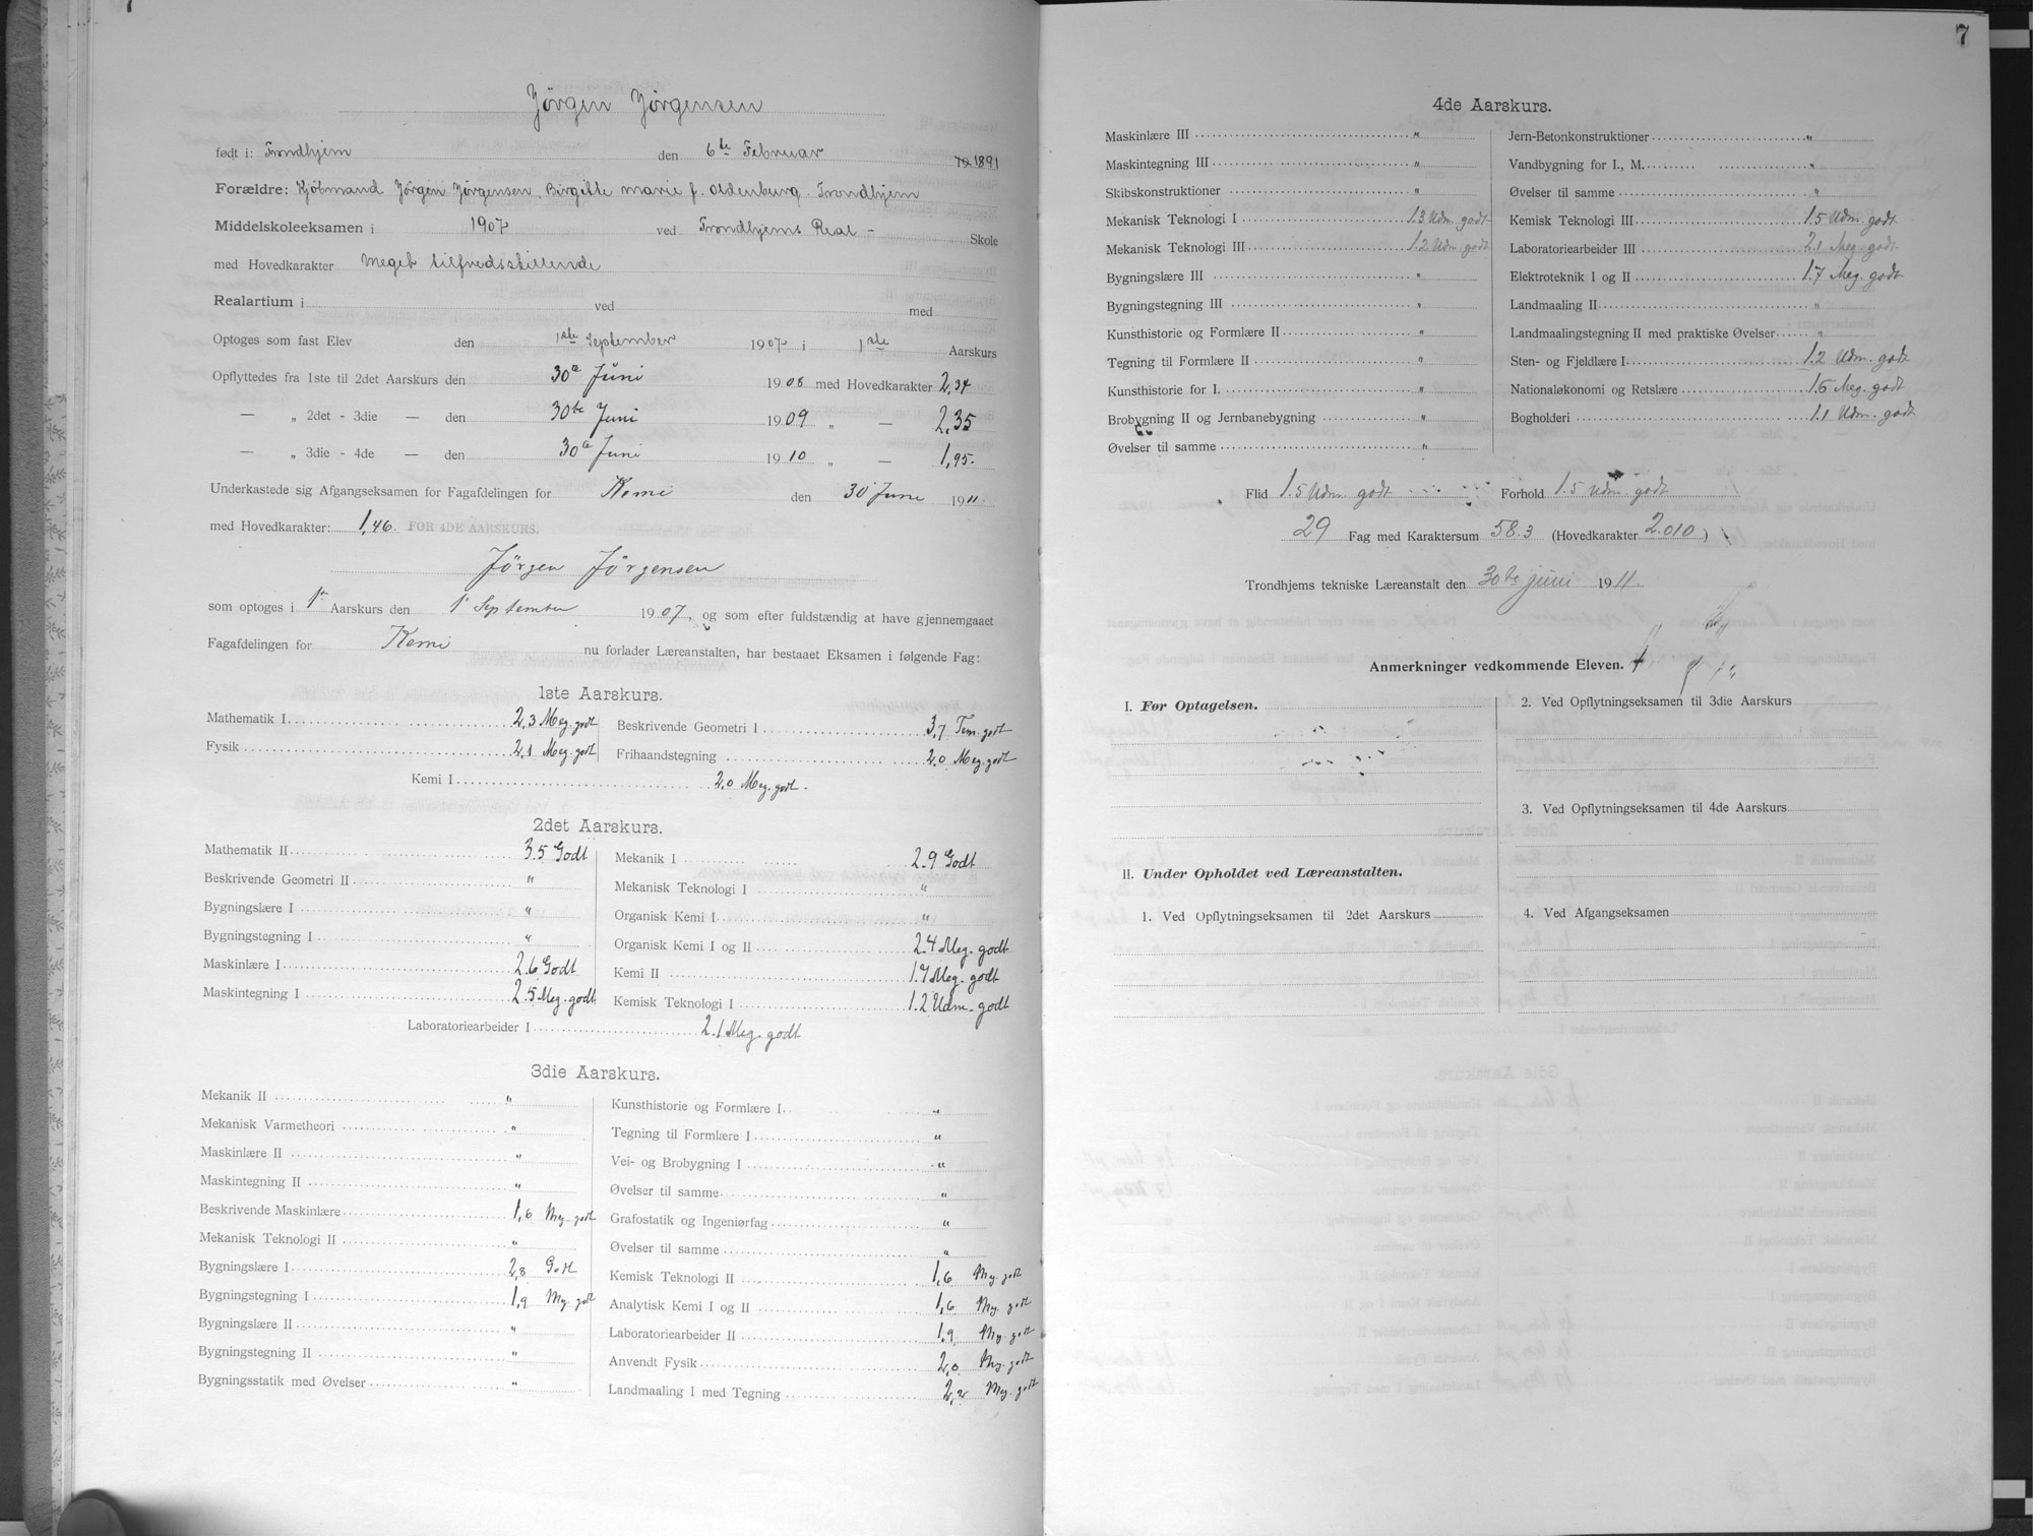 7
Jörgen Jörgensen
født i: Trondhjem den 6te Februar 1891
Forældre: Kjöbmand Jörgen Jörgensen. Birgitte Marie f. Oldenburg. Trondhjem
Middelskoleeksamen i 1907 ved Trondhjems Real - Skole
med Hovedkarakter Meget tilfredsstillende
Realartium i ved med
Optoges som fast Elev den 1ste September 1907 i 1ste Aarskurs
Opflyttedes fra 1ste til 2det Aarskurs den 30te Juni 1908 med Hovedkarakter 2,34
— „ 2det - 3die — den 30te Juni 1909 „ — 2,35
— „ 3die - 4de — den 30te Juni 1910 „ — 1,95.
Underkastede sig Afgangseksamen for Fagafdelingen for Kemi den 30 Juni 1911.
med Hovedkarakter: 1,46. FOR 4DE AARSKURS.
Jörgen Jörgensen
som optoges i 1ste Aarskurs den 1ste September 1907, og som efter fuldstændig at have gjennemgaaet
Fagafdelingen for Kemi nu forlader Læreanstalten, har bestaaet Eksamen i følgende Fag:
1ste Aarskurs.
Mathematik I 2,3 Meg. godt
Fysik 2,1 Meg. godt
Beskrivende Geometri I 3,7 Tem. godt
Frihaandstegning 2,0 Meg. godt
Kemi I 2,0 Meg. godt.
2det Aarskurs.
Mathematik II 3.5 Godt
Beskrivende Geometri II "
Bygningslære I "
Bygningstegning I "
Maskinlære I 2.6 Godt
Maskintegning I 2.5 Meg. godt
Mekanik I 2.9 Godt
Mekanisk Teknologi I "
Organisk Kemi I "
Organisk Kemi I og II 2.4 Meg. godt
Kemi II 1.7 Meg. godt
Kemisk Teknologi I 1.2 Udm. godt
Laboratoriearbeider I 2.1 Meg. godt
3die Aarskurs.
Mekanik II "
Mekanisk Varmetheori "
Maskinlære II "
Maskintegning II "
Beskrivende Maskinlære 1,6 Meg. godt
Mekanisk Teknologi II "
Bygningslære I 2,8 Godt
Bygningstegning I 1,9 Meg. godt
Bygningslære II "
Bygningstegning II "
Bygningsstatik med Øvelser "
Kunsthistorie og Formlære I "
Tegning til Formlære I "
Vei- og Brobygning I "
Øvelser til samme "
Grafostatik og Ingeniørfag "
Øvelser til samme "
Kemisk Teknologi II 1,6 Meg. godt
Analytisk Kemi I og II 1,6 Meg. godt
Laboratoriearbeider II 1,9 Meg. godt
Anvendt Fysik 2,0 Meg. godt
Landmaaling I med Tegning 2,2 Meg. godt
7
4de Aarskurs.
Maskinlære III "
Maskintegning III "
Skibskonstruktioner "
Mekanisk Teknologi I 1.3 Udm. godt
Mekanisk Teknologi III 1.2 Udm. godt
Bygningslære III "
Bygningstegning III "
Kunsthistorie og Formlære II "
Tegning til Formlære II "
Kunsthistorie for I. "
Brobygning II og Jernbanebygning "
Øvelser til samme "
Jern-Betonkonstruktioner "
Vandbygning for I., M. "
Øvelser til samme "
Kemisk Teknologi III 1.5 Udm. godt
Laboratoriearbeider III 2.1 Meg. godt
Elektroteknik I og II 1.7 Meg. godt
Landmaaling II "
Landmaalingstegning II med praktiske Øvelser "
Sten- og Fjeldlære I 1.2 Udm. godt
Nationaløkonomi og Retslære 1.6 Meg. godt
Bogholderi 1.1 Udm. godt
Flid 1.5 Udm. godt Forhold 1.5 Udm. godt
29 Fag med Karaktersum 58.3 (Hovedkarakter 2.010)
Trondhjems tekniske Læreanstalt den 30te juni 1911.
Anmerkninger vedkommende Eleven.
I. Før Optagelsen.
II. Under Opholdet ved Læreanstalten.
1. Ved Opflytningseksamen til 2det Aarskurs
2. Ved Opflytningseksamen til 3die Aarskurs
3. Ved Opflytningseksamen til 4de Aarskurs
4. Ved Afgangseksamen